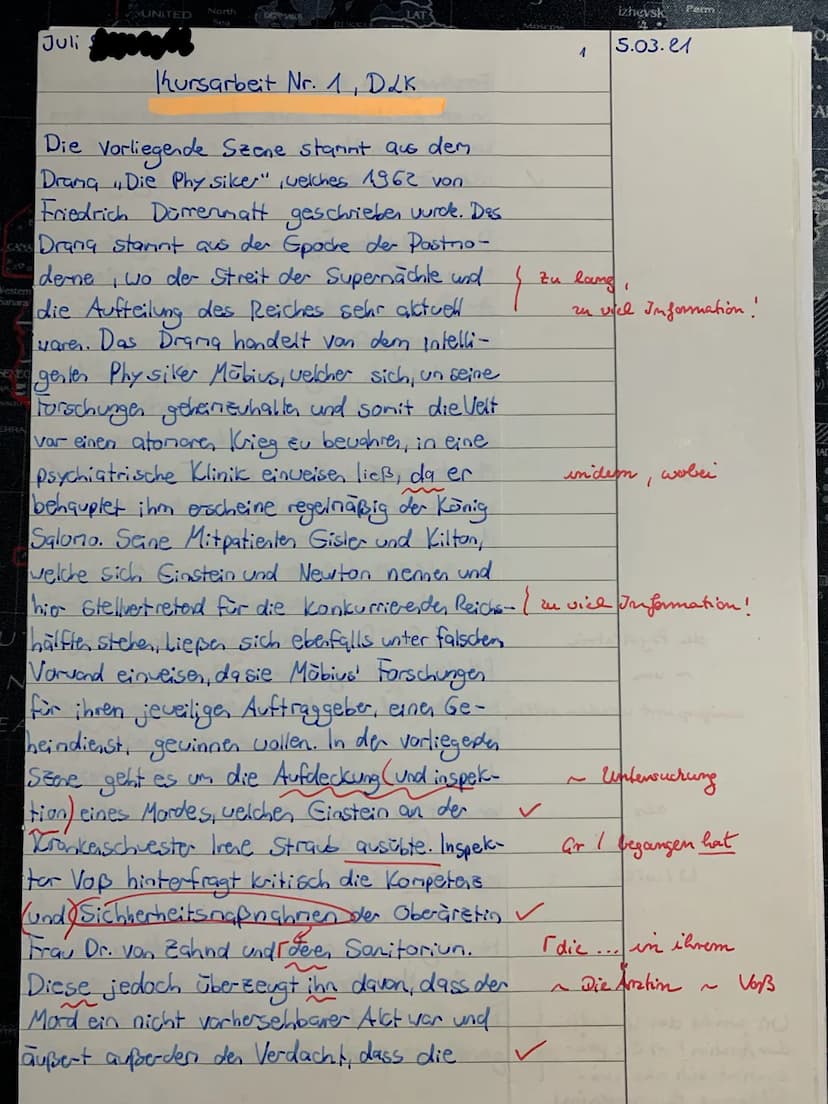 UNITED
North
Sea
LAT
izhevsk
Perm
Moscow
Juli
1
5.03.21
Kursarbeit Nr. 1, DLK
Die vorliegende Szene stammt aus dem
Drama „Die Physiker", welches 1962 von
Friedrich Dürrenmatt geschrieben wurde. Das
Drama stammt aus der Epoche der Postmo-
derne, wo der Streit der Supermächte und
zu lang,
die Aufteilung des Reiches sehr aktuell
zu viel Information!
waren. Das Drama handelt von dem intelli-
genten Physiker Möbius, welcher sich, um seine
Forschungen geheimzuhalten und somit die Welt
vor einen atomaren Krieg zu bewahren, in eine
psychiatrische Klinik einweisen ließ, da er
indem, wobei
behauptet ihm erscheine regelmäßig der König
Salomo. Seine Mitpatienten Eisler und Kilton,
welche sich Einstein und Newton nennen und
hier stellvertretend für die konkurrierenden Reichs-
zu viel Information!
hälften stehen, ließen sich ebenfalls unter falschen
Vorwand einweisen, da sie Möbius' Forschungen
für ihren jeweiligen Auftraggeber, einen Ge-
heimdienst, gewinnen wollen. In der vorliegenden
Szene geht es um die Aufdeckung (und inspek-
~ Untersuchung
tion) eines Mordes, welchen Einstein an der ✓
Krankenschwester Irene Straub ausübte. Inspek-
Gr / begangen hat
tor Voß hinterfragt kritisch die Kompetenz
(und) Sicherheitsmaßnahmen der Oberärtin ✓
Frau Dr. von Zahnd und deren Sanitorium.
die ... in ihrem
Diese jedoch überzeugt ihn davon, dass der
~ Die Ärztin ~ Voß
Mord ein nicht vorhersehbarer Akt war und
äußert außerdem den Verdacht, dass die ✓